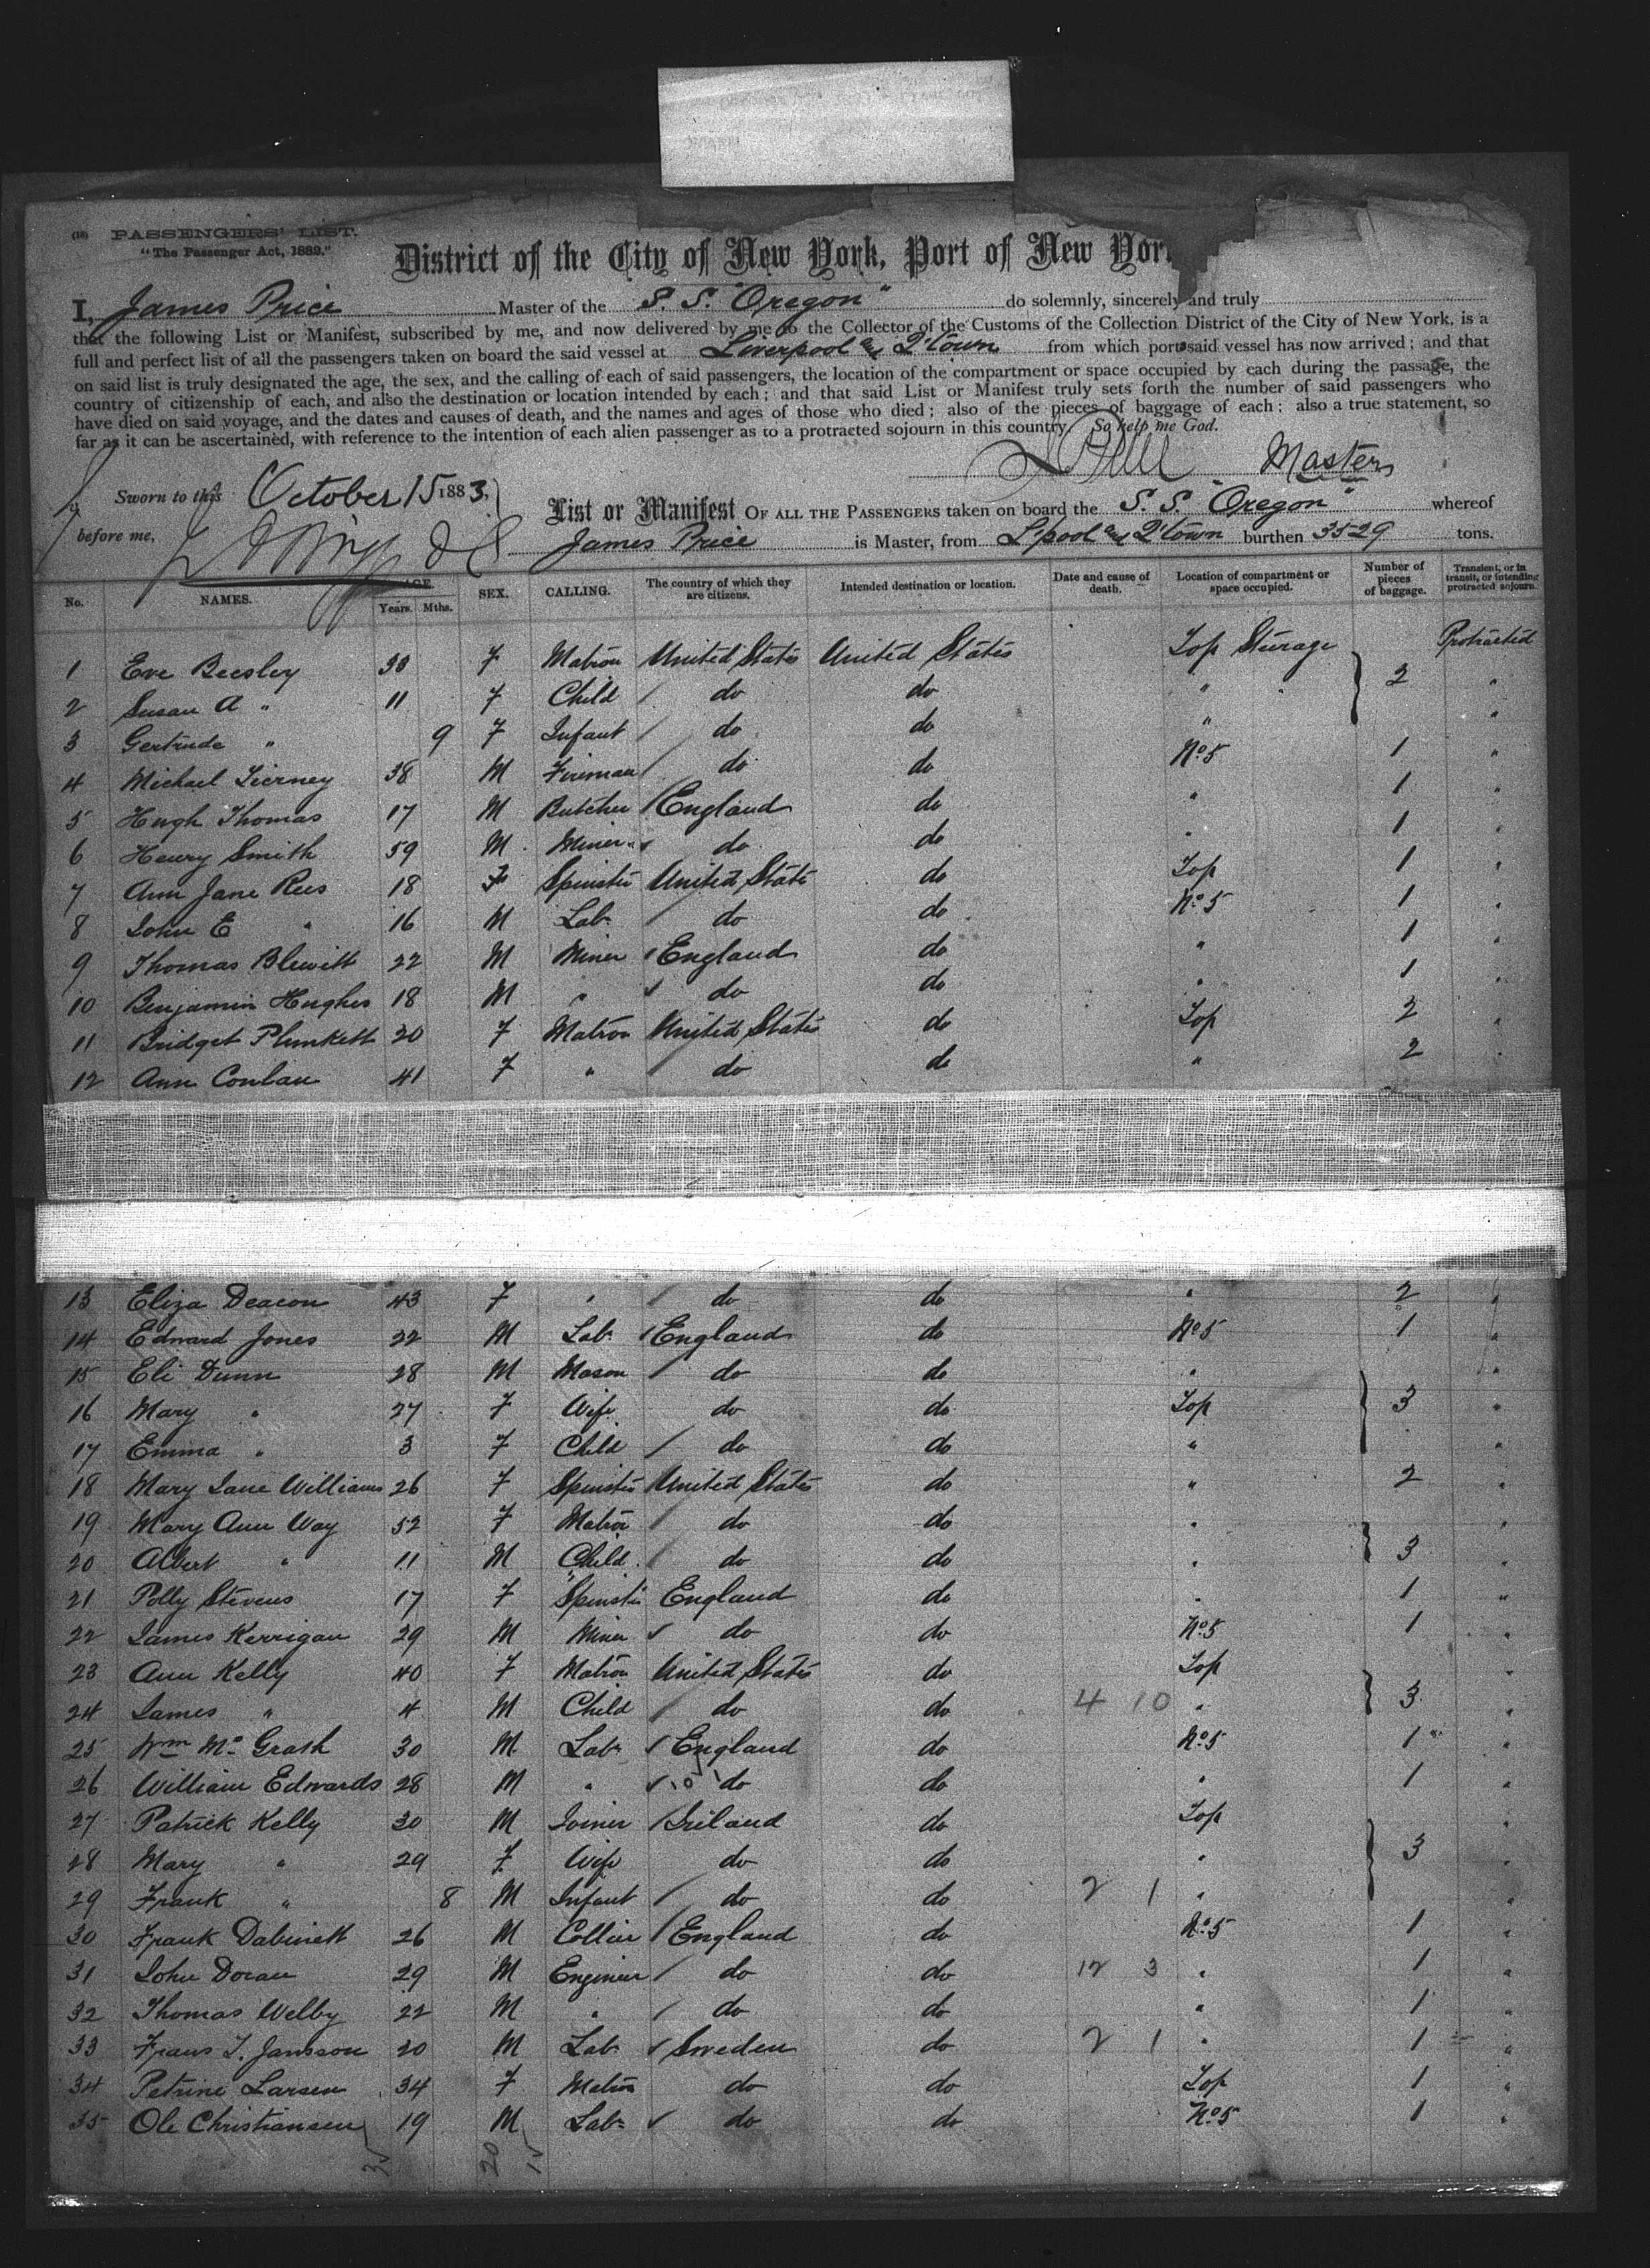 (18) PASSENGERS' LIST.
"The Passenger Act, 1882."
District of the City of New York, Port of New Yor
I, James Price Master of the S. S. "Oregon" do solemnly, sincerely and truly
that the following List or Manifest, subscribed by me, and now delivered by me to the Collector of the Customs of the Collection District of the City of New York, is a
full and perfect list of all the passengers taken on board the said vessel at Liverpool and Q'town from which port said vessel has now arrived; and that
on said list is truly designated the age, the sex, and the calling of each of said passengers, the location of the compartment or space occupied by each during the passage, the
country of citizenship of each, and also the destination or location intended by each; and that said List or Manifest truly sets forth the number of said passengers who
have died on said voyage, and the dates and causes of death, and the names and ages of those who died; also of the pieces of baggage of each; also a true statement, so
far as it can be ascertained, with reference to the intention of each alien passenger as to a protracted sojourn in this country. So help me God.
Master
Sworn to this October 15 1883,
before me,
List or Manifest OF ALL THE PASSENGERS taken on board the S. S. "Oregon" whereof
James Price is Master, from L'pool and Q'town burthen 3529 tons.
No. NAMES. AGE. Years. Mths. SEX. CALLING. The country of which they are citizens. Intended destination or location. Date and cause of death. Location of compartment or space occupied. Number of pieces of baggage. Transient, or in transit, or intending protracted sojourn.
1 Eve Beesley 38 F Matron United States United States Top Steerage Protracted
2 Susan A " 11 F Child do do " 2 "
3 Gertrude " 9 F Infant do do " "
4 Michael Tierney 38 M Fireman do do No. 5 1 "
5 Hugh Thomas 17 M Butcher England do " 1 "
6 Henry Smith 59 M Miner do do " 1 "
7 Ann Jane Rees 18 F Spinster United States do Top 1 "
8 John E " 16 M Lab. do do No. 5 1 "
9 Thomas Blewitt 22 M Miner England do " 1 "
10 Benjamin Hughes 18 M " do do " 1 "
11 Bridget Plunkett 20 F Matron United States do Top 2 "
12 Ann Conlan 41 F " do do " 2 "
13 Eliza Deacon 43 F " do do " 2 "
14 Edward Jones 22 M Lab. England do No. 5 1 "
15 Eli Dunn 28 M Mason do do "
16 Mary " 27 F Wife do do Top 3 "
17 Emma " 3 F Child do do " "
18 Mary Jane Williams 26 F Spinster United States do " 2 "
19 Mary Ann Way 52 F Matron do do " "
20 Albert " 11 M Child do do " 3 "
21 Polly Stevens 17 F Spinster England do " 1 "
22 James Kerrigan 29 M Miner do do No. 5 1 "
23 Ann Kelly 40 F Matron United States do Top "
24 James " 4 M Child do do 4 10 " 3 "
25 Wm Mc Grath 30 M Lab. England do No. 5 1 "
26 William Edwards 28 M " do do " 1 "
27 Patrick Kelly 30 M Joiner Ireland do Top "
28 Mary " 29 F Wife do do " 3 "
29 Frank " 8 M Infant do do 2 1 " "
30 Frank Dabinett 26 M Collier England do No. 5 1 "
31 John Doran 29 M Engineer do do 12 3 " 1 "
32 Thomas Welby 22 M " do do " 1 "
33 Frans J. Jansson 20 M Lab. Sweden do 2 1 " 1 "
34 Petrine Larsen 34 F Matron do do Top 1 "
35 Ole Christiansen 19 M Lab. do do No. 5 1 "
35 20 15